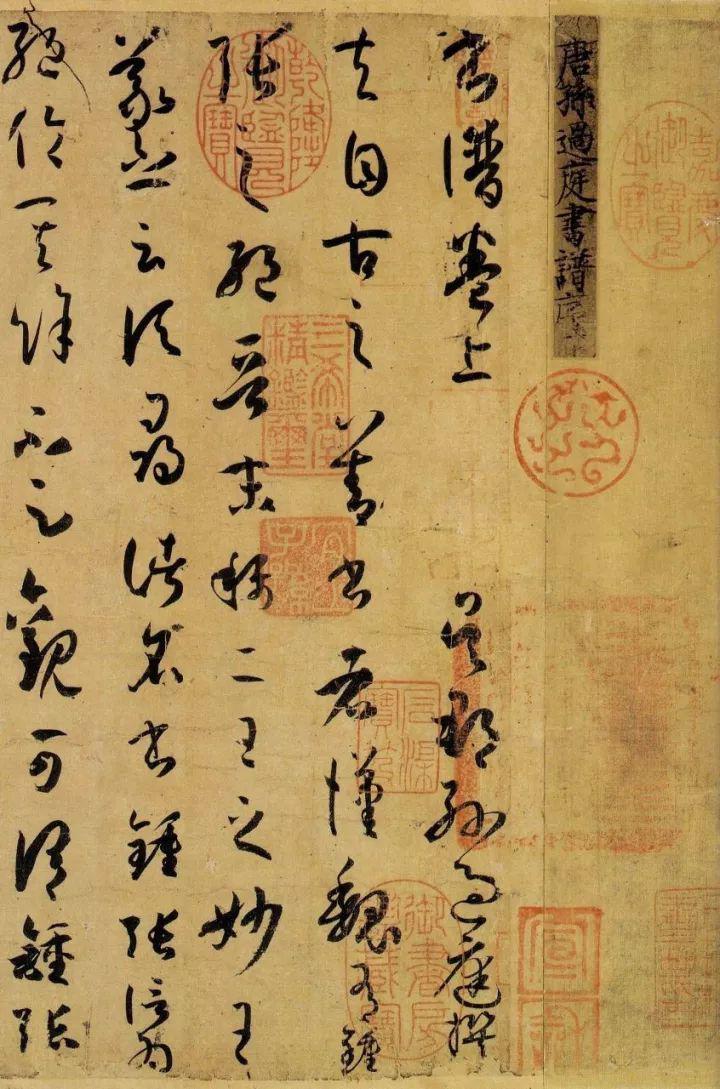 嘉慶御覽之寶
唐孫過庭書譜序
書譜卷上 吳郡孫過庭撰
夫自古之善書者漢魏有鍾
張之絕晉末稱二王之妙王
羲之云頃尋諸名書鍾張信為
絕倫其餘不足觀可謂鍾張
乾隆御覽之寶
三希堂精鑑璽
宜子孫
石渠寶笈
御書房鑑藏寶